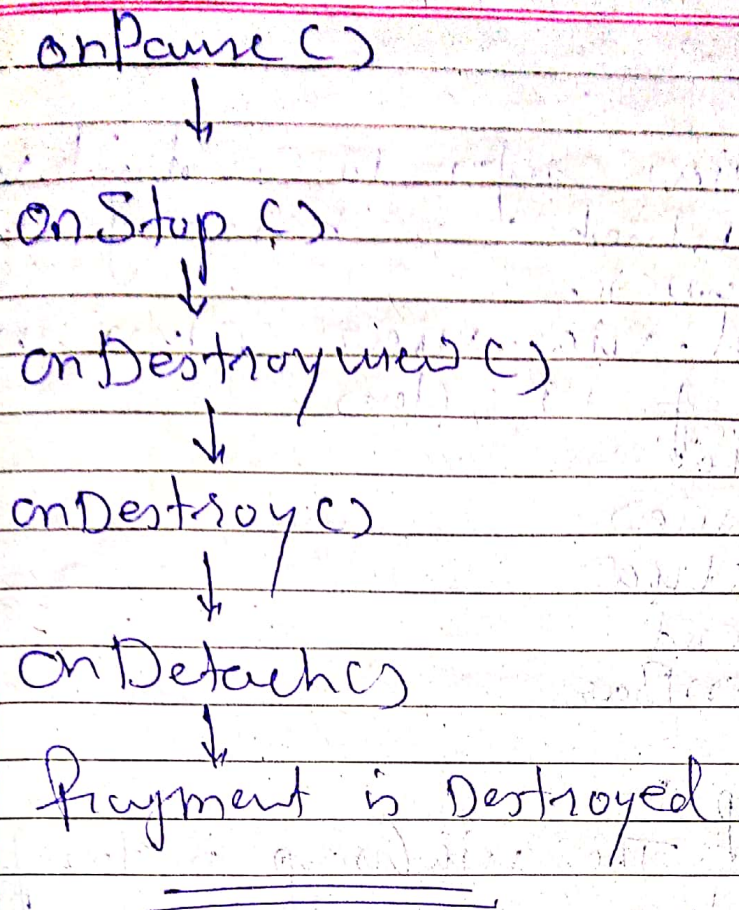 onPause ()
↓
onStop ()
↓
onDestroyview ()
↓
onDestroy ()
↓
onDetach ()
↓
fragment is Destroyed